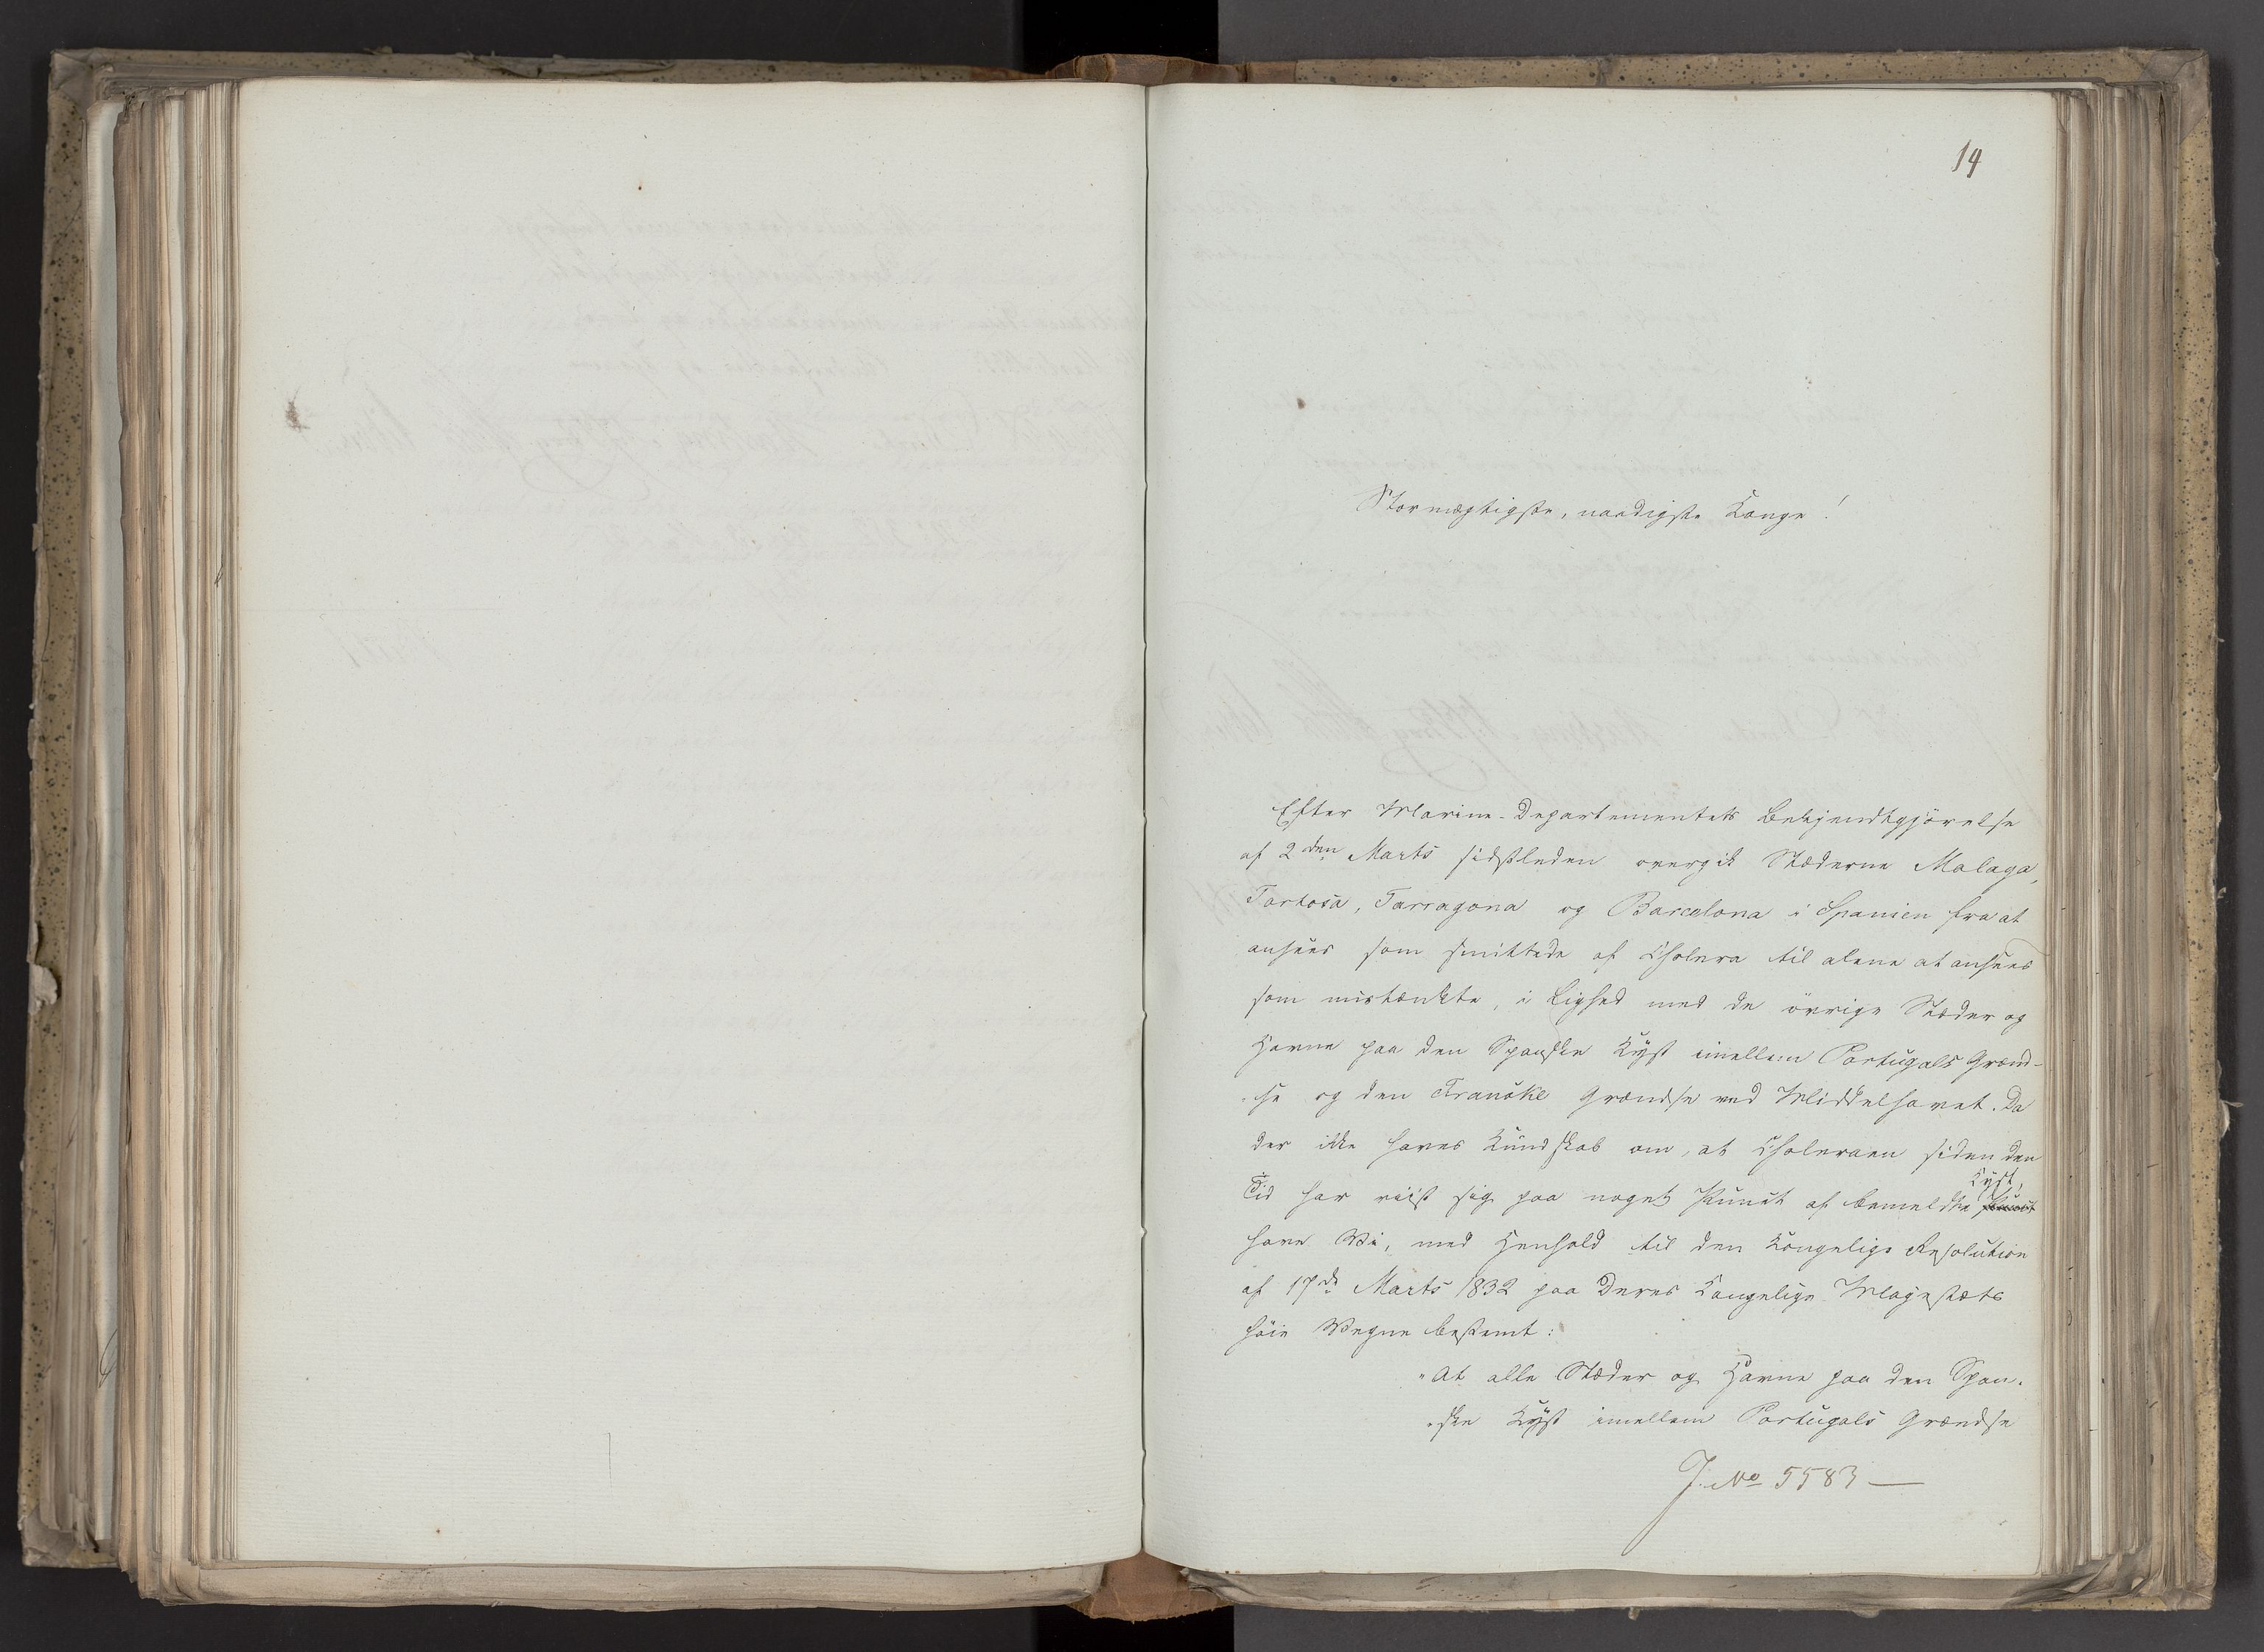 14
Stormægtigste, naadigste Konge!
Efter Marine-Departementets Bekjendtgjörelse
af 2den Marts sidstleden overgik Stæderne Malaga,
Tortosa, Tarragona og Barcelona i Spanien fra at
ansees som smittede af Cholera til alene at ansees
som mistænkte, i Lighed med de övrige Stæder og
Havne paa den Spanske Kyst imellem Portugals Grænd-
se og den Franske Grændse ved Middelhavet. Da
der ikke haves Kundskab om, at Choleraen siden den
Kyst,
Tid har viist sig paa noget Punct af bemeldte Punct
have Vi, med Henhold til den Kongelige Resolution
af 17de Marts 1832 paa Deres Kongelige Majestæts
höie Vegne bestemt:
"At alle Stæder og Havne paa den Span-
"ske Kyst imellem Portugals Grændse
J. No 5583 —